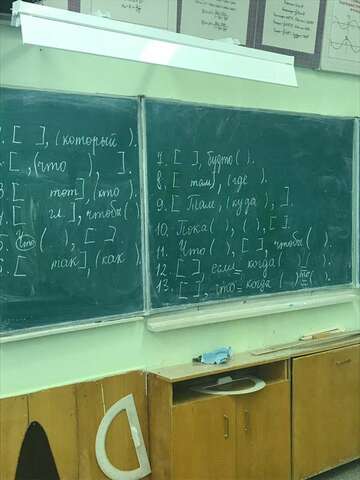 1. [ ], (который ).
[ , (что ), ].
3 [ тот], (кто ).
4 [ гл.], чтобы ( ).
5. Что ( ), [ ].
6 [ так], (как ).
7. [ ], будто ( ).
8. [ там], (где ).
9. [ Там, (куда ), ].
10. Пока ( ), ( ), [ ].
11. Что ( ), [ ], чтобы ( ).
12 [ ], если когда ( ), ( ).
13. [ ], что когда ( ) то ( ).